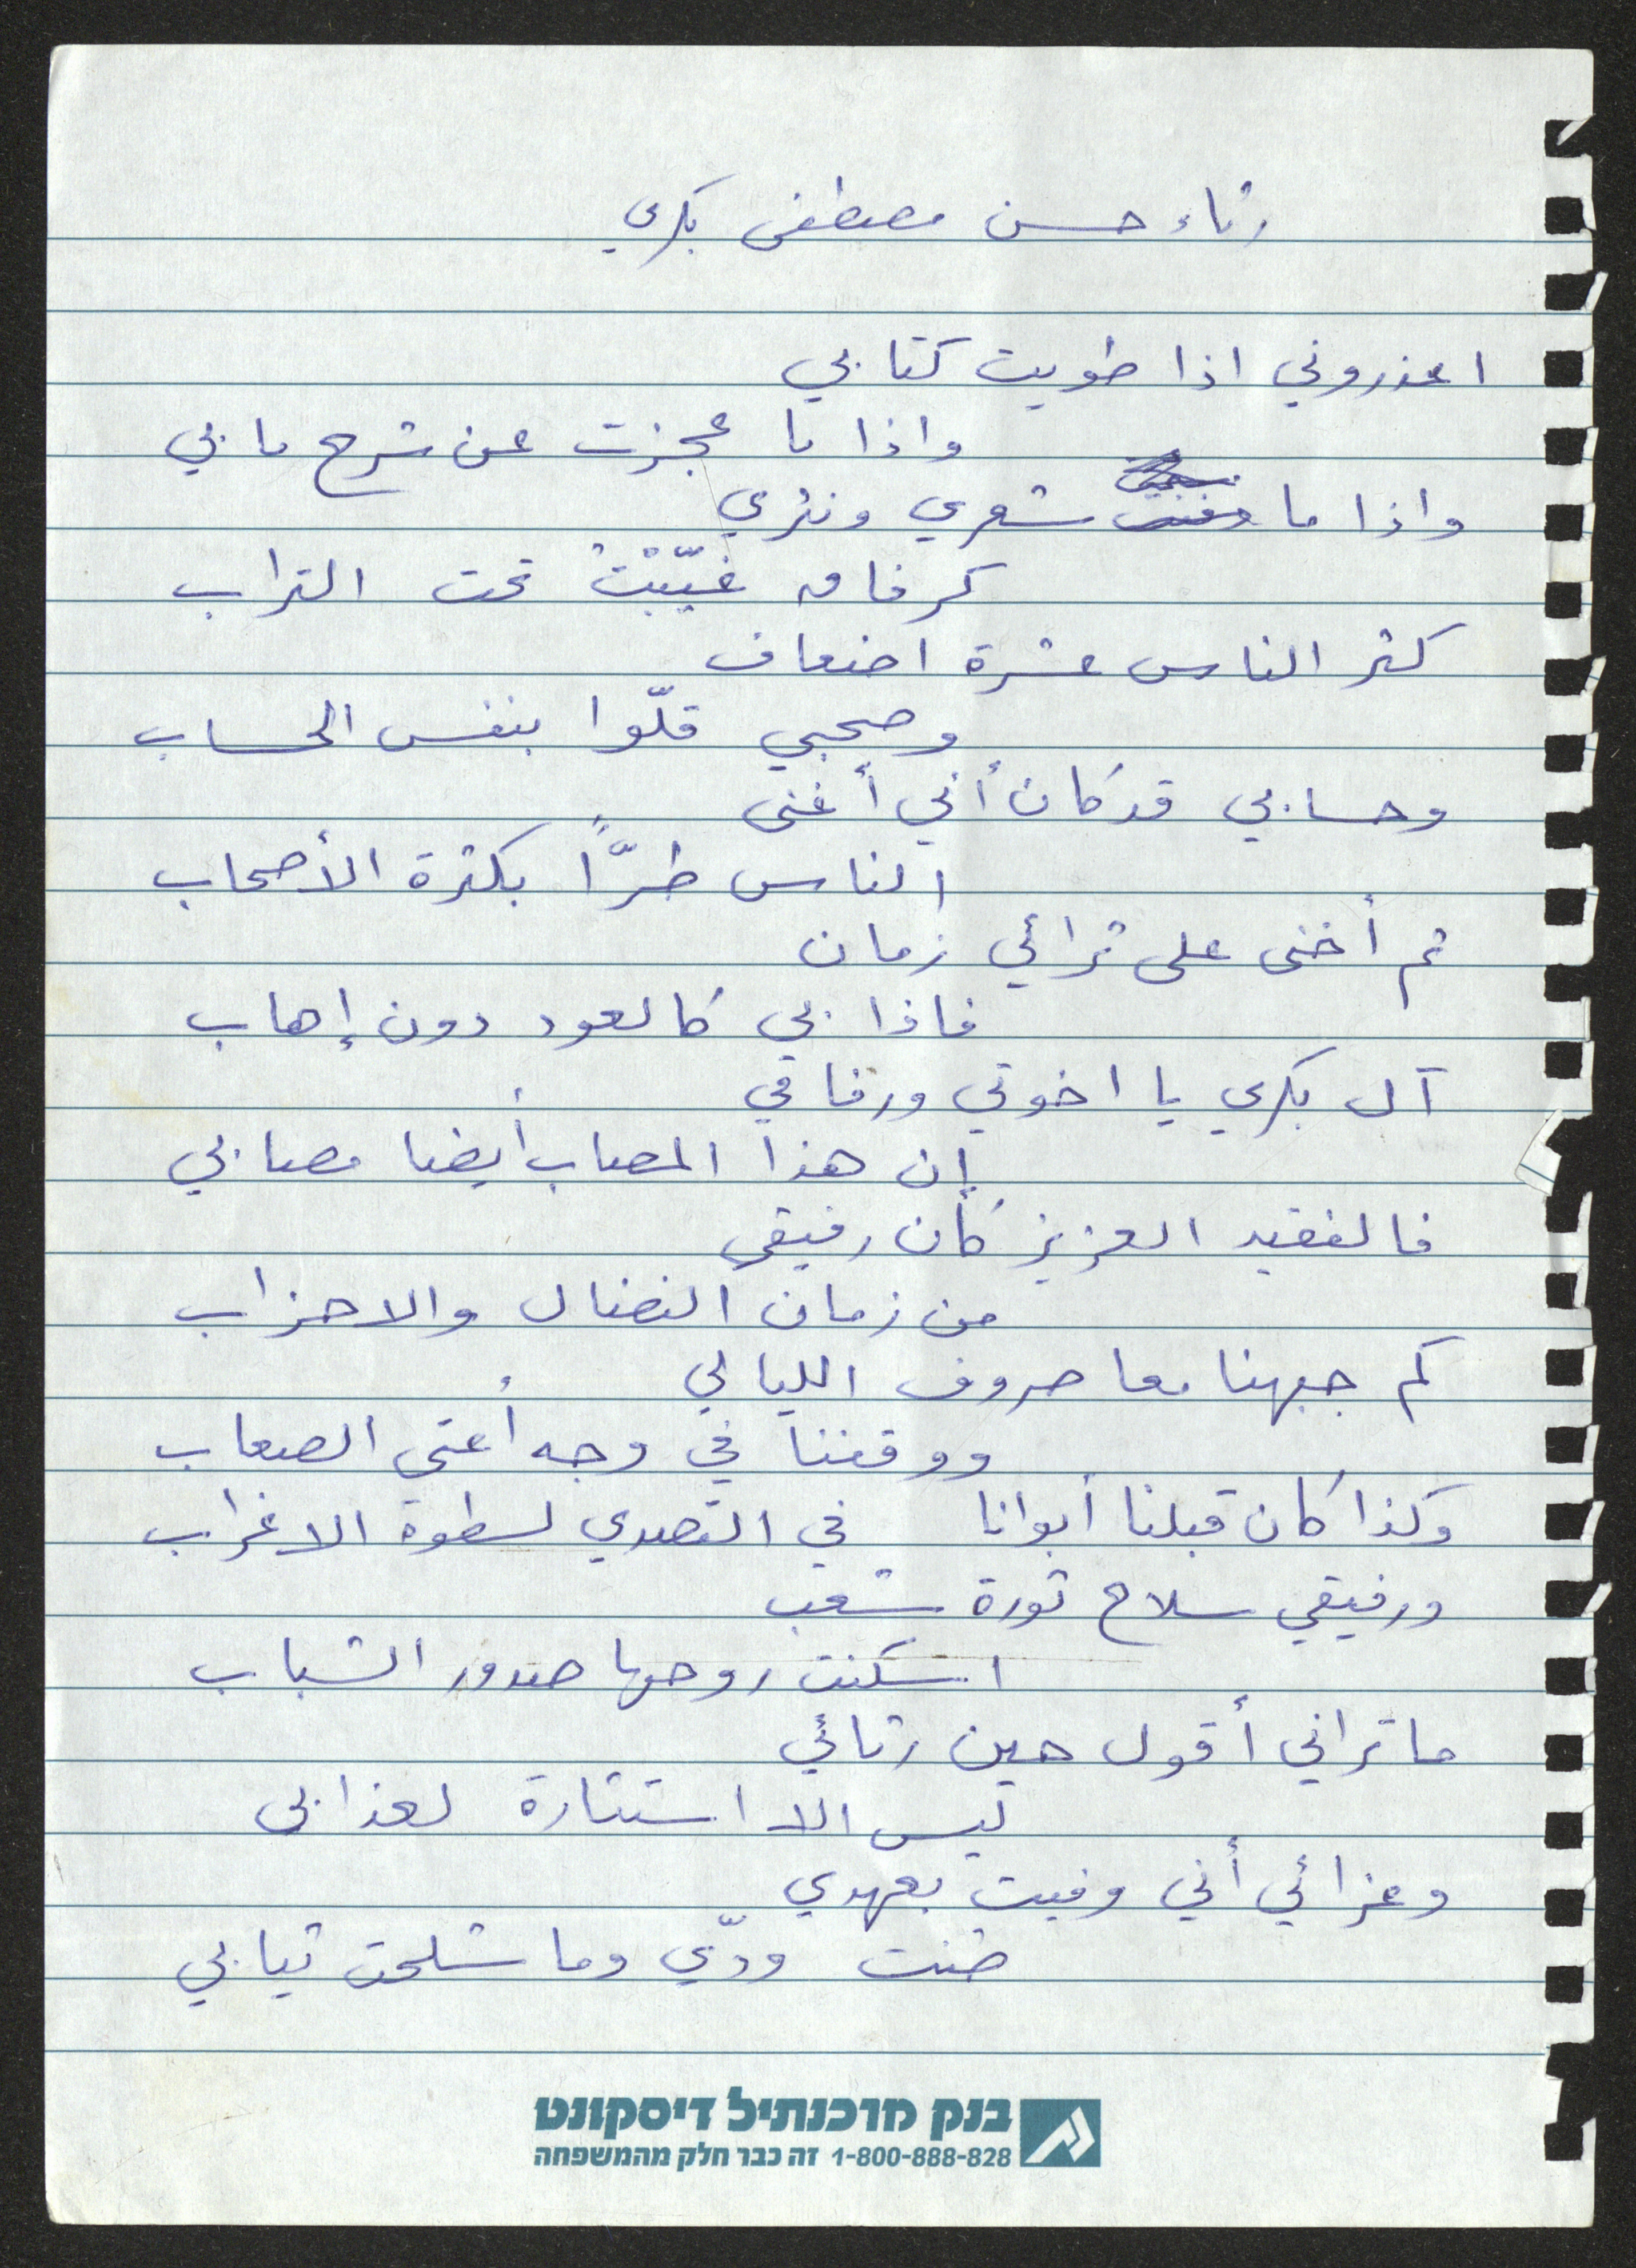 رثاء حسن مصطفى بكري
اعذروني اذا طويت كتابي
واذا ما عجزت عن شرح ما بي
واذا ما شعري ونثري
كرفات غيّبتْ تحت التراب
كثر الناس عشرة اضعاف
وصحبي قلّوا بنفس الحساب
وحسابي قد كان أني أغنى
الناس طرًّا بكثرة الأصحاب
ثم أخنى على ثرائي زمان
فاذا بي كالعود دون إهاب
آل بكري يا اخوتي ورفاقي
إن هذا المصاب أيضا مصابي
فالفقيد العزيز كان رفيقي
من زمان النضال والاحزاب
كم جبهنا معا صروف الليالي
ووقفنا في وجه أعتى الصعاب
وكذا كان قبلنا أبوانا في التصدي لسطوة الاغراب
ورفيقي سلاح ثورة شعب
اسكنت روحها صدور الشباب
ما تراني أقول حين رثائي
ليس الا استثارة لعذابي
وعزائي أني وفيت بعهدي
صنت ودّي وما شلحت ثيابي
בנק מרכנתיל דיסקונט
1-800-888-828 זה כבר חלק מהמשפחה